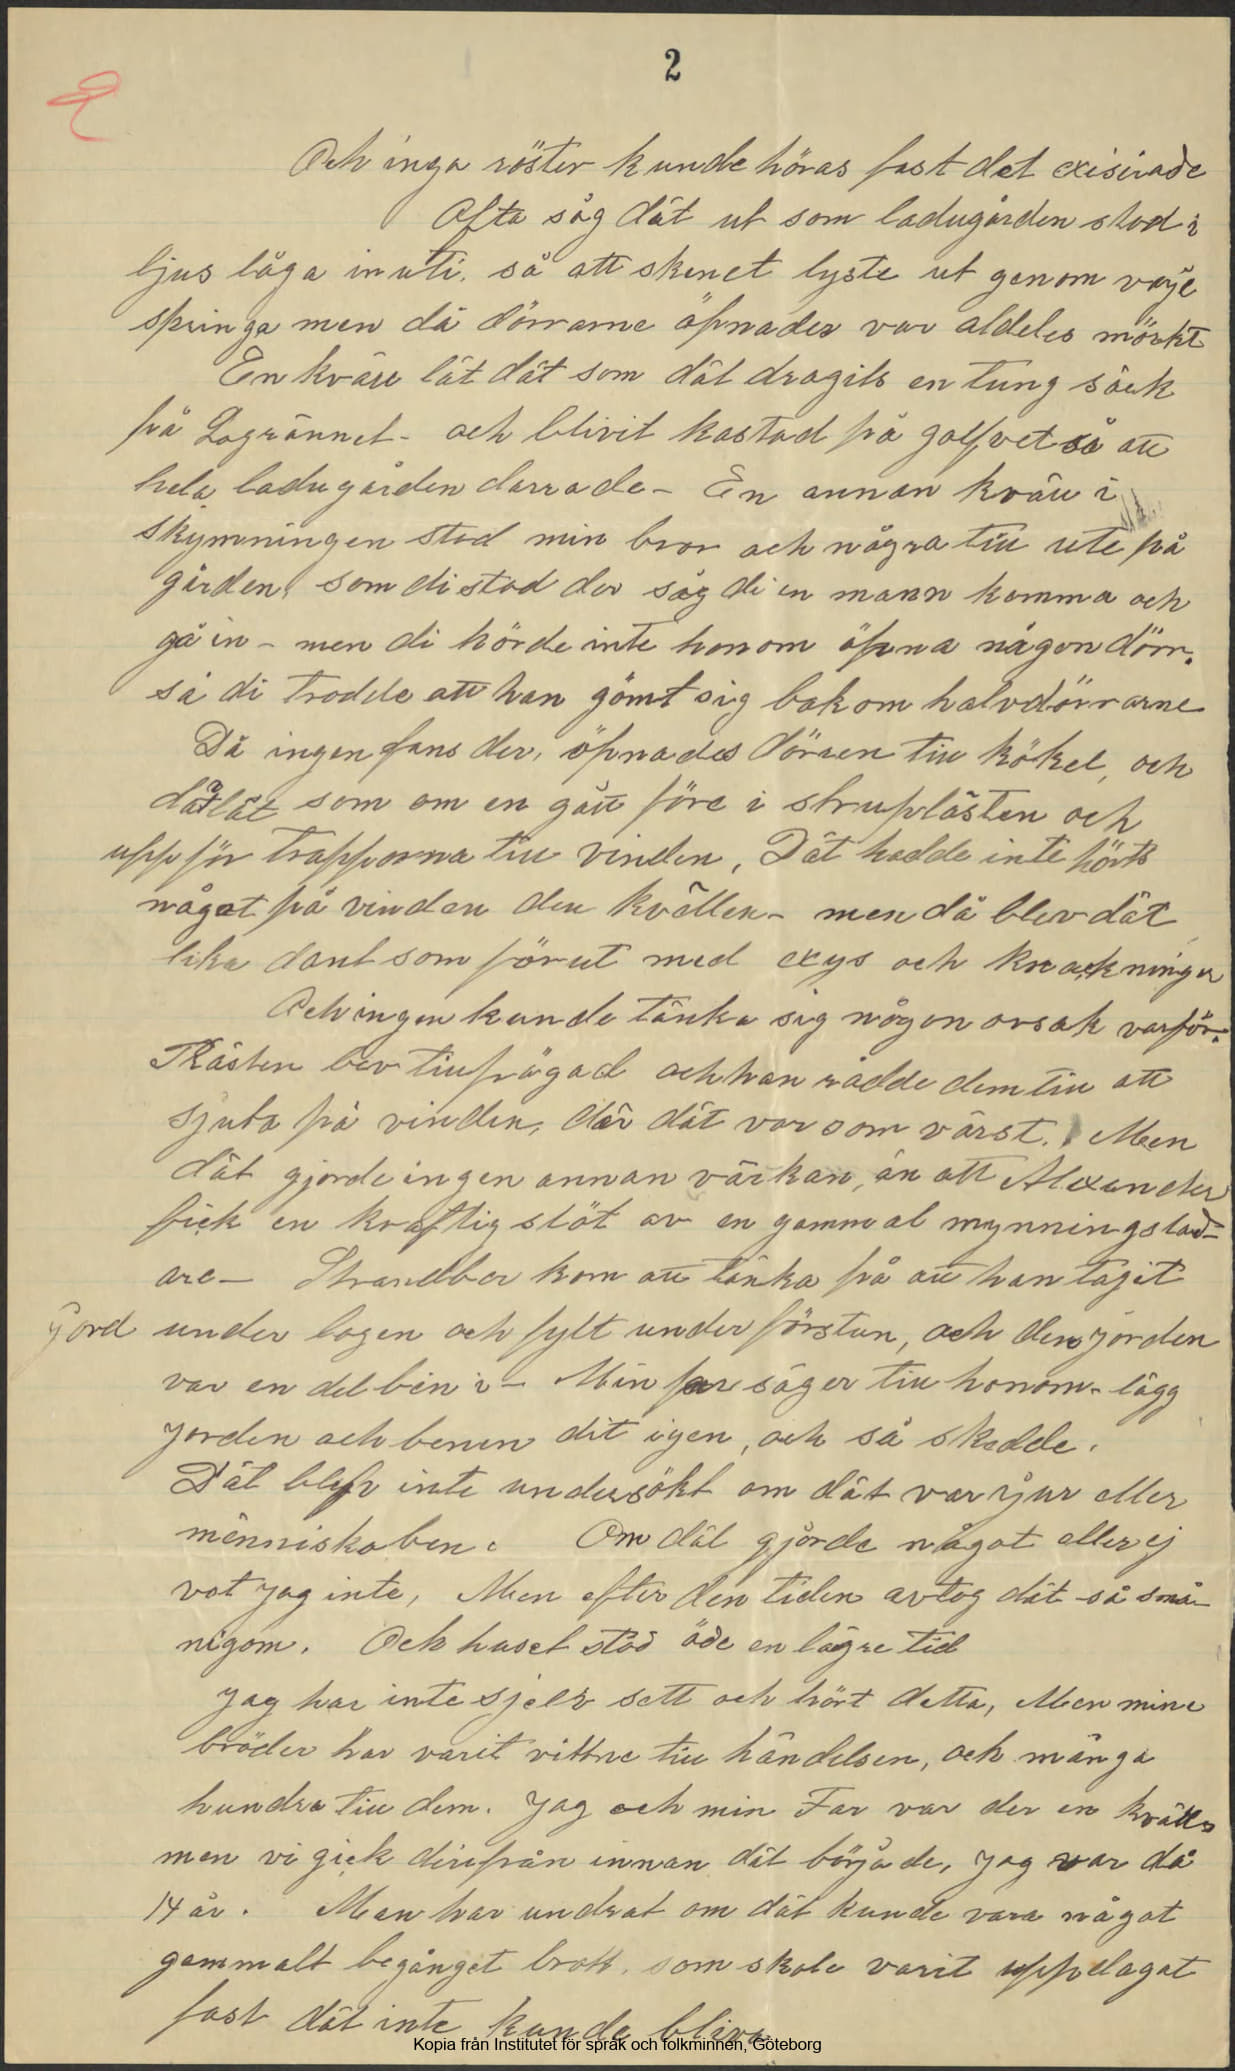 2
Och inga röster kunde höras fast det exisirade
Ofta såg dät ut som ladugården stod i
ljus låga inuti. så att skenet lyste ut genom varje
springa men då dörrarne öpnades var aldeles mörkt
En kväll lät dät som dät dragits en tung säck
på Logrännet - och blivit kastad på golfvet så att
hela ladugården darrade - En annan kväll i
skymningen stod min bror och några till ute på
gården, som di stod der såg di en mann komma och
gå in - men di hörde inte honom öpna någon dörr.
så di trodde att han gömt sig bakom halvdörrarne
Då ingen fans der, öpnades dörren till köket, och
då lät som om en gått före i
uppför trapporna till vinden, Dät hadde inte hörts
något på vinden den kvällen - men då blev dät
lika dant som förut med och knackningar
Och ingen kunde tänka sig någon orsak varför.
Prästen blev tillfrågad och han rådde dem till att
sjuta på vinden, där dät var som värst. Men
dät gjorde ingen annan värkan, än att Alexander
fick en kraftig stöt av en gammal mynningslad-
are - Strandber kom att tänka på att han tagit
jord under logen och fylt under förstun, och den jorden
var en del ben i - Min far säger till honom - lägg
jorden och benen dit igen, och så skedde.
Dät blefv inte undersökt om dät var djur eller
menniskoben. Om dät gjorde något eller ej
vet jag inte, Men efter den tiden avtog dät så små-
nigom. Ock huset stod öde en lägre tid
Jag har inte sjelv sett och hört detta, Men mine
bröder har varit vittne till händelsen, och många
hundra till dem. Jag och min Far var der en kväll
men vi gick derifrån innan dät började, jag var då
14 år. Man har undrat om dät kunde vara något
gammalt begånget brott, som skole varit uppdagat
fast dät inte kunde bliva
Kopia från Institutet för språk och folkminnen, Göteborg